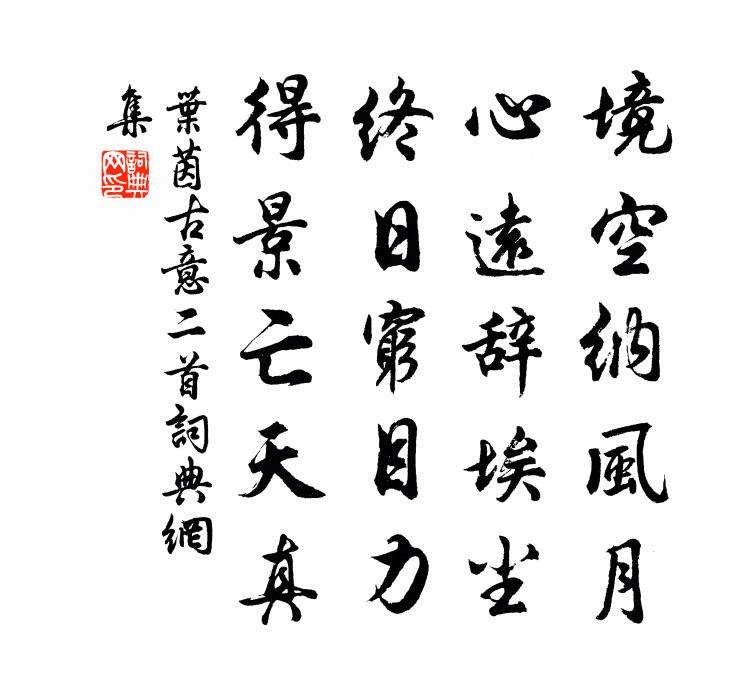 境空納風月
心遠辞埃尘
終日窮目力
得景亡天真
葉茵古意二首詞典網
集
詞典
网印